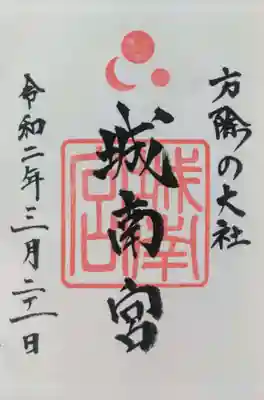 方除の大社
城南宮
令和二年三月二十一日